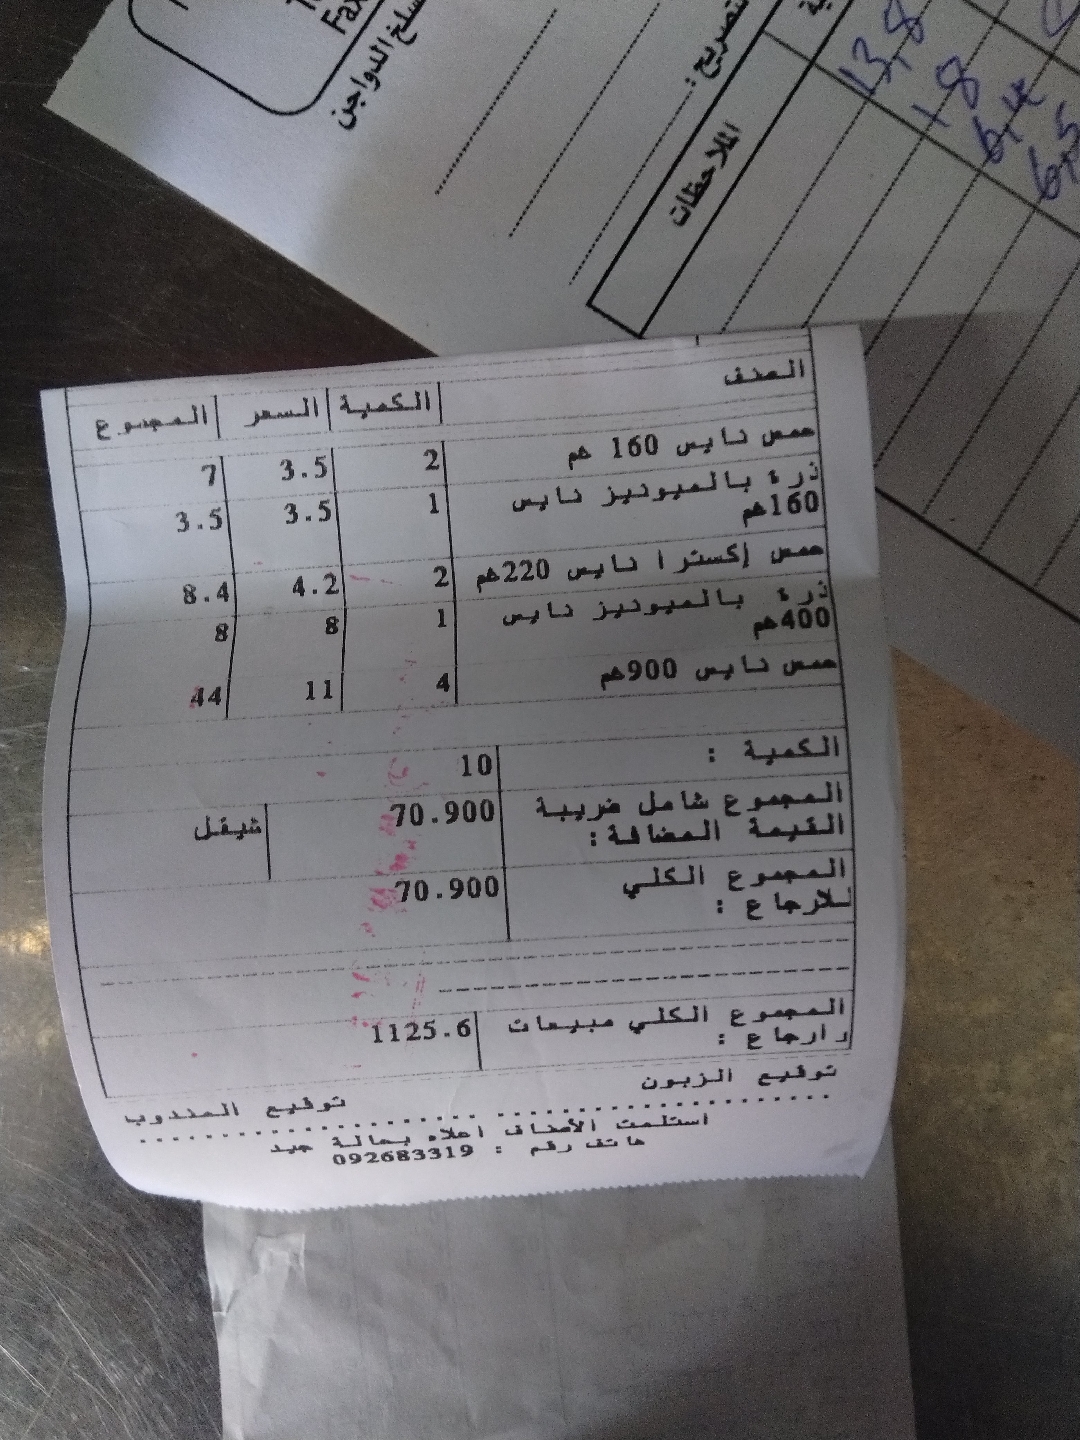 Fax
سلخ الدواجن
تصريح :
الملاحظات
13,8
18
6,4
6,5
الصنف الكمية السعر المجموع
حمص نايس 160 غم 2 3.5 7
ذرة بالميونيز نايس 1 3.5 3.5
160غم
حمص إكسترا نايس 220غم 2 4.2 8.4
ذرة بالميونيز نايس 1 8 8
400غم
حمص نايس 900غم 4 11 44
الكمية : 10
المجموع شامل ضريبة 70.900 شيقل
القيمة المضافة :
المجموع الكلي 70.900
للارجاع :
المجموع الكلي مبيعات 1125.6
وارجاع :
توقيع الزبون توقيع المندوب
استلمت الأصناف اعلاه بحالة جيد
هاتف رقم : 092683319